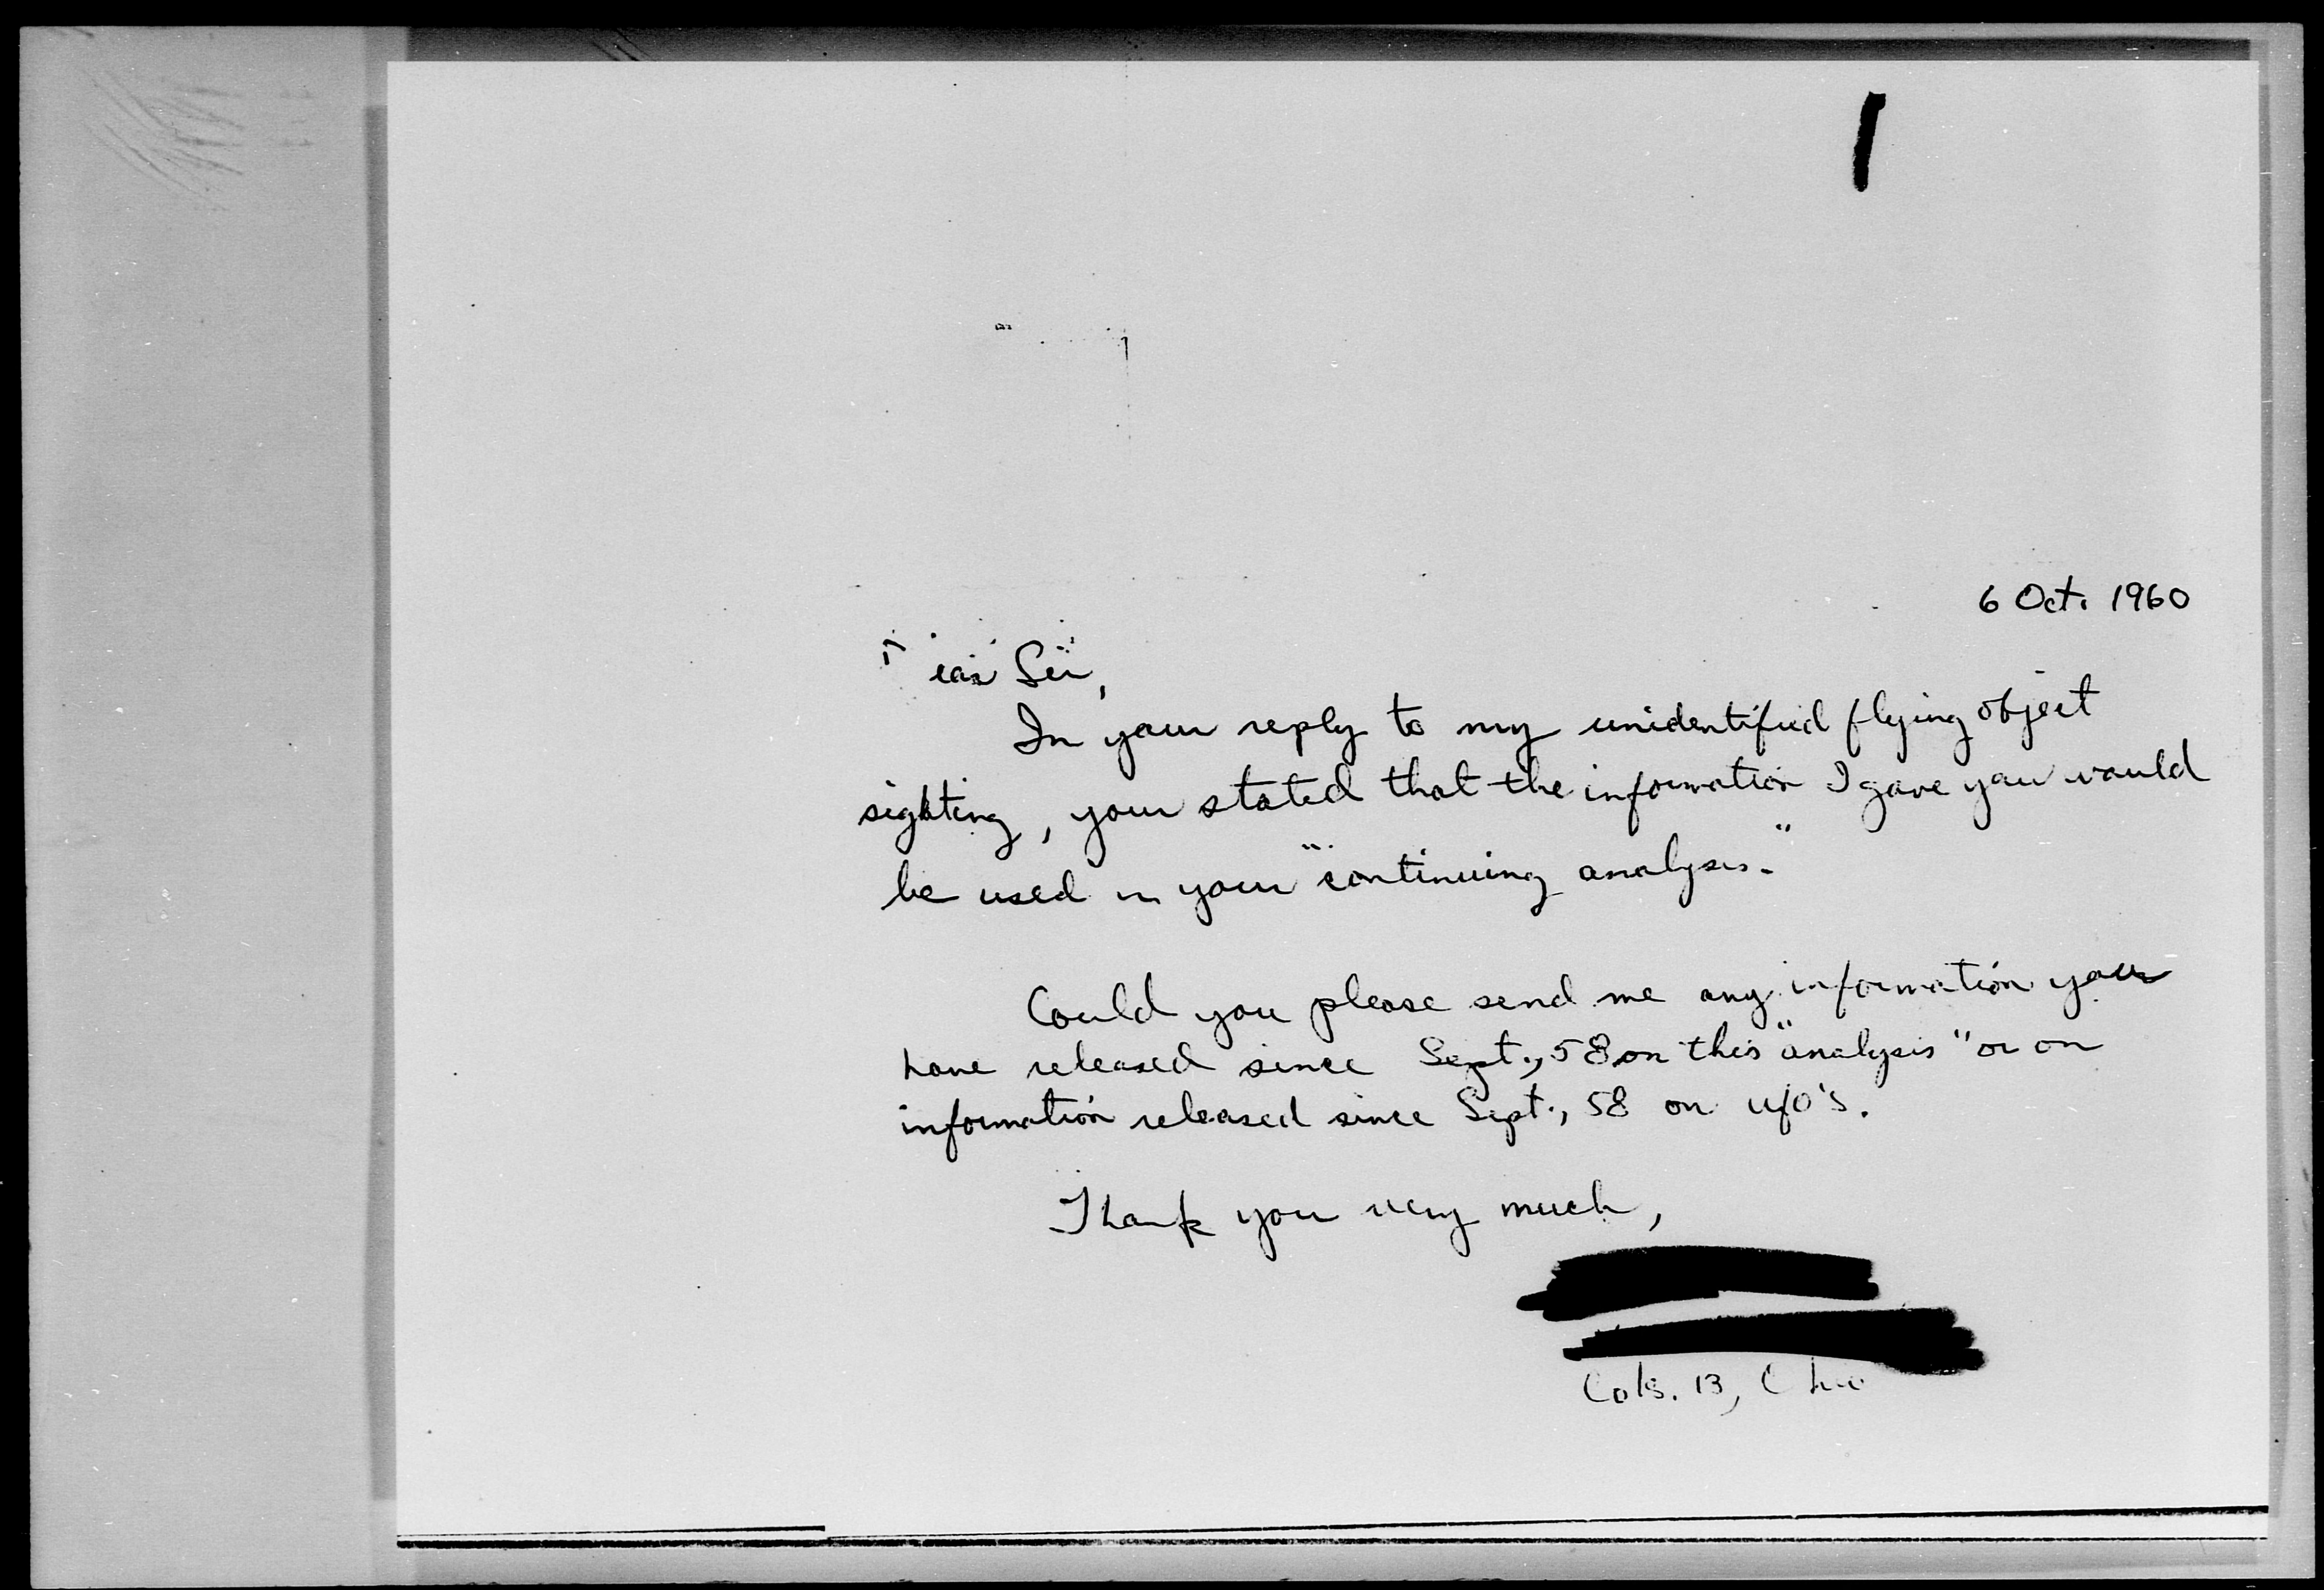 6 Oct. 1960
Dear Sir,
In your reply to my unidentified flying object
sighting, your stated that the information I gave you would
be used in your "continuing analysis."
Could you please send me any information you
have released since Sept., 58 on this "analysis" or on
information released since Sept., 58 on ufo's.
Thank you very much,
Cols. 13, Ohio